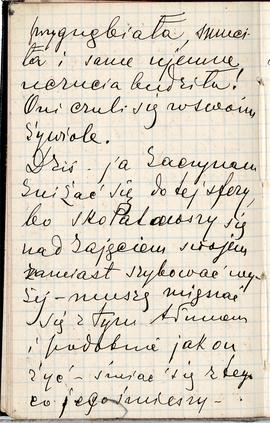 przygnębiała, smuci-
ła i same ujemne
uczucia budziła!
Oni czuli się w swoim
żywiole.
Dziś – ja zaczynam
zniżać się do tej sfery,
bo
się
nad zajęciem swojem
zamiast szybować wy-
żej – muszę
się z tym tłumem
i podobnie jak on
żyć – śmiać się z te-
go co jego śmieszy –